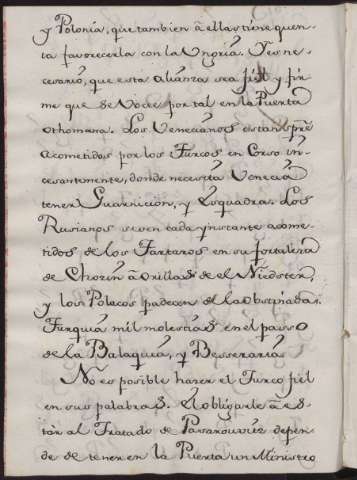 y Polonia, que tambien à ellas tiene quen-
ta favorecerla con la Ungria. Yes ne-
cesario, que esta alianza sea fiel y fir-
me que se Voce por tal en la Puerta
othomana. Los Venecianos están spre
acometidos por los Turcos en Corso in-
cesantemente, donde necesita Venecia
tener Guarnicion, y Esquadra. Los
Rusianos se ven cada ynstante acome-
tidos de los Tartaros en su fortaleza
de Chozin à orillas de el Niester,
y los Polacos padecen de la obstinada
Turquia mil molestias en el passo
de la Balaquia, y Besseravia
No es posible hazer el Turco fiel
en sus palabras. El obligarle à es-
tàr al Tratado de Pasarouviz depen-
de de tener en la Puerta un Ministro